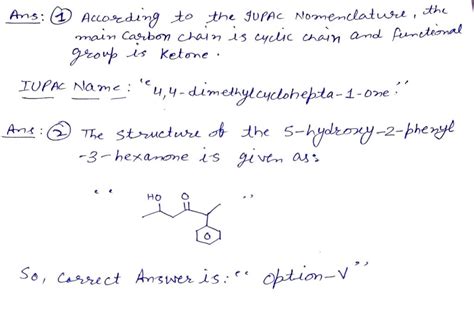 Ans: ① According to the IUPAC Nomenclature, the
main Carbon chain is cyclic chain and functional
group is Ketone.
IUPAC Name: "4,4-dimethylcyclohepta-1-one."
Ans: ② The structure of the 5-hydroxy-2-phenyl
-3-hexanone is given as:
HO O
So, Correct Answer is: "Option-V"